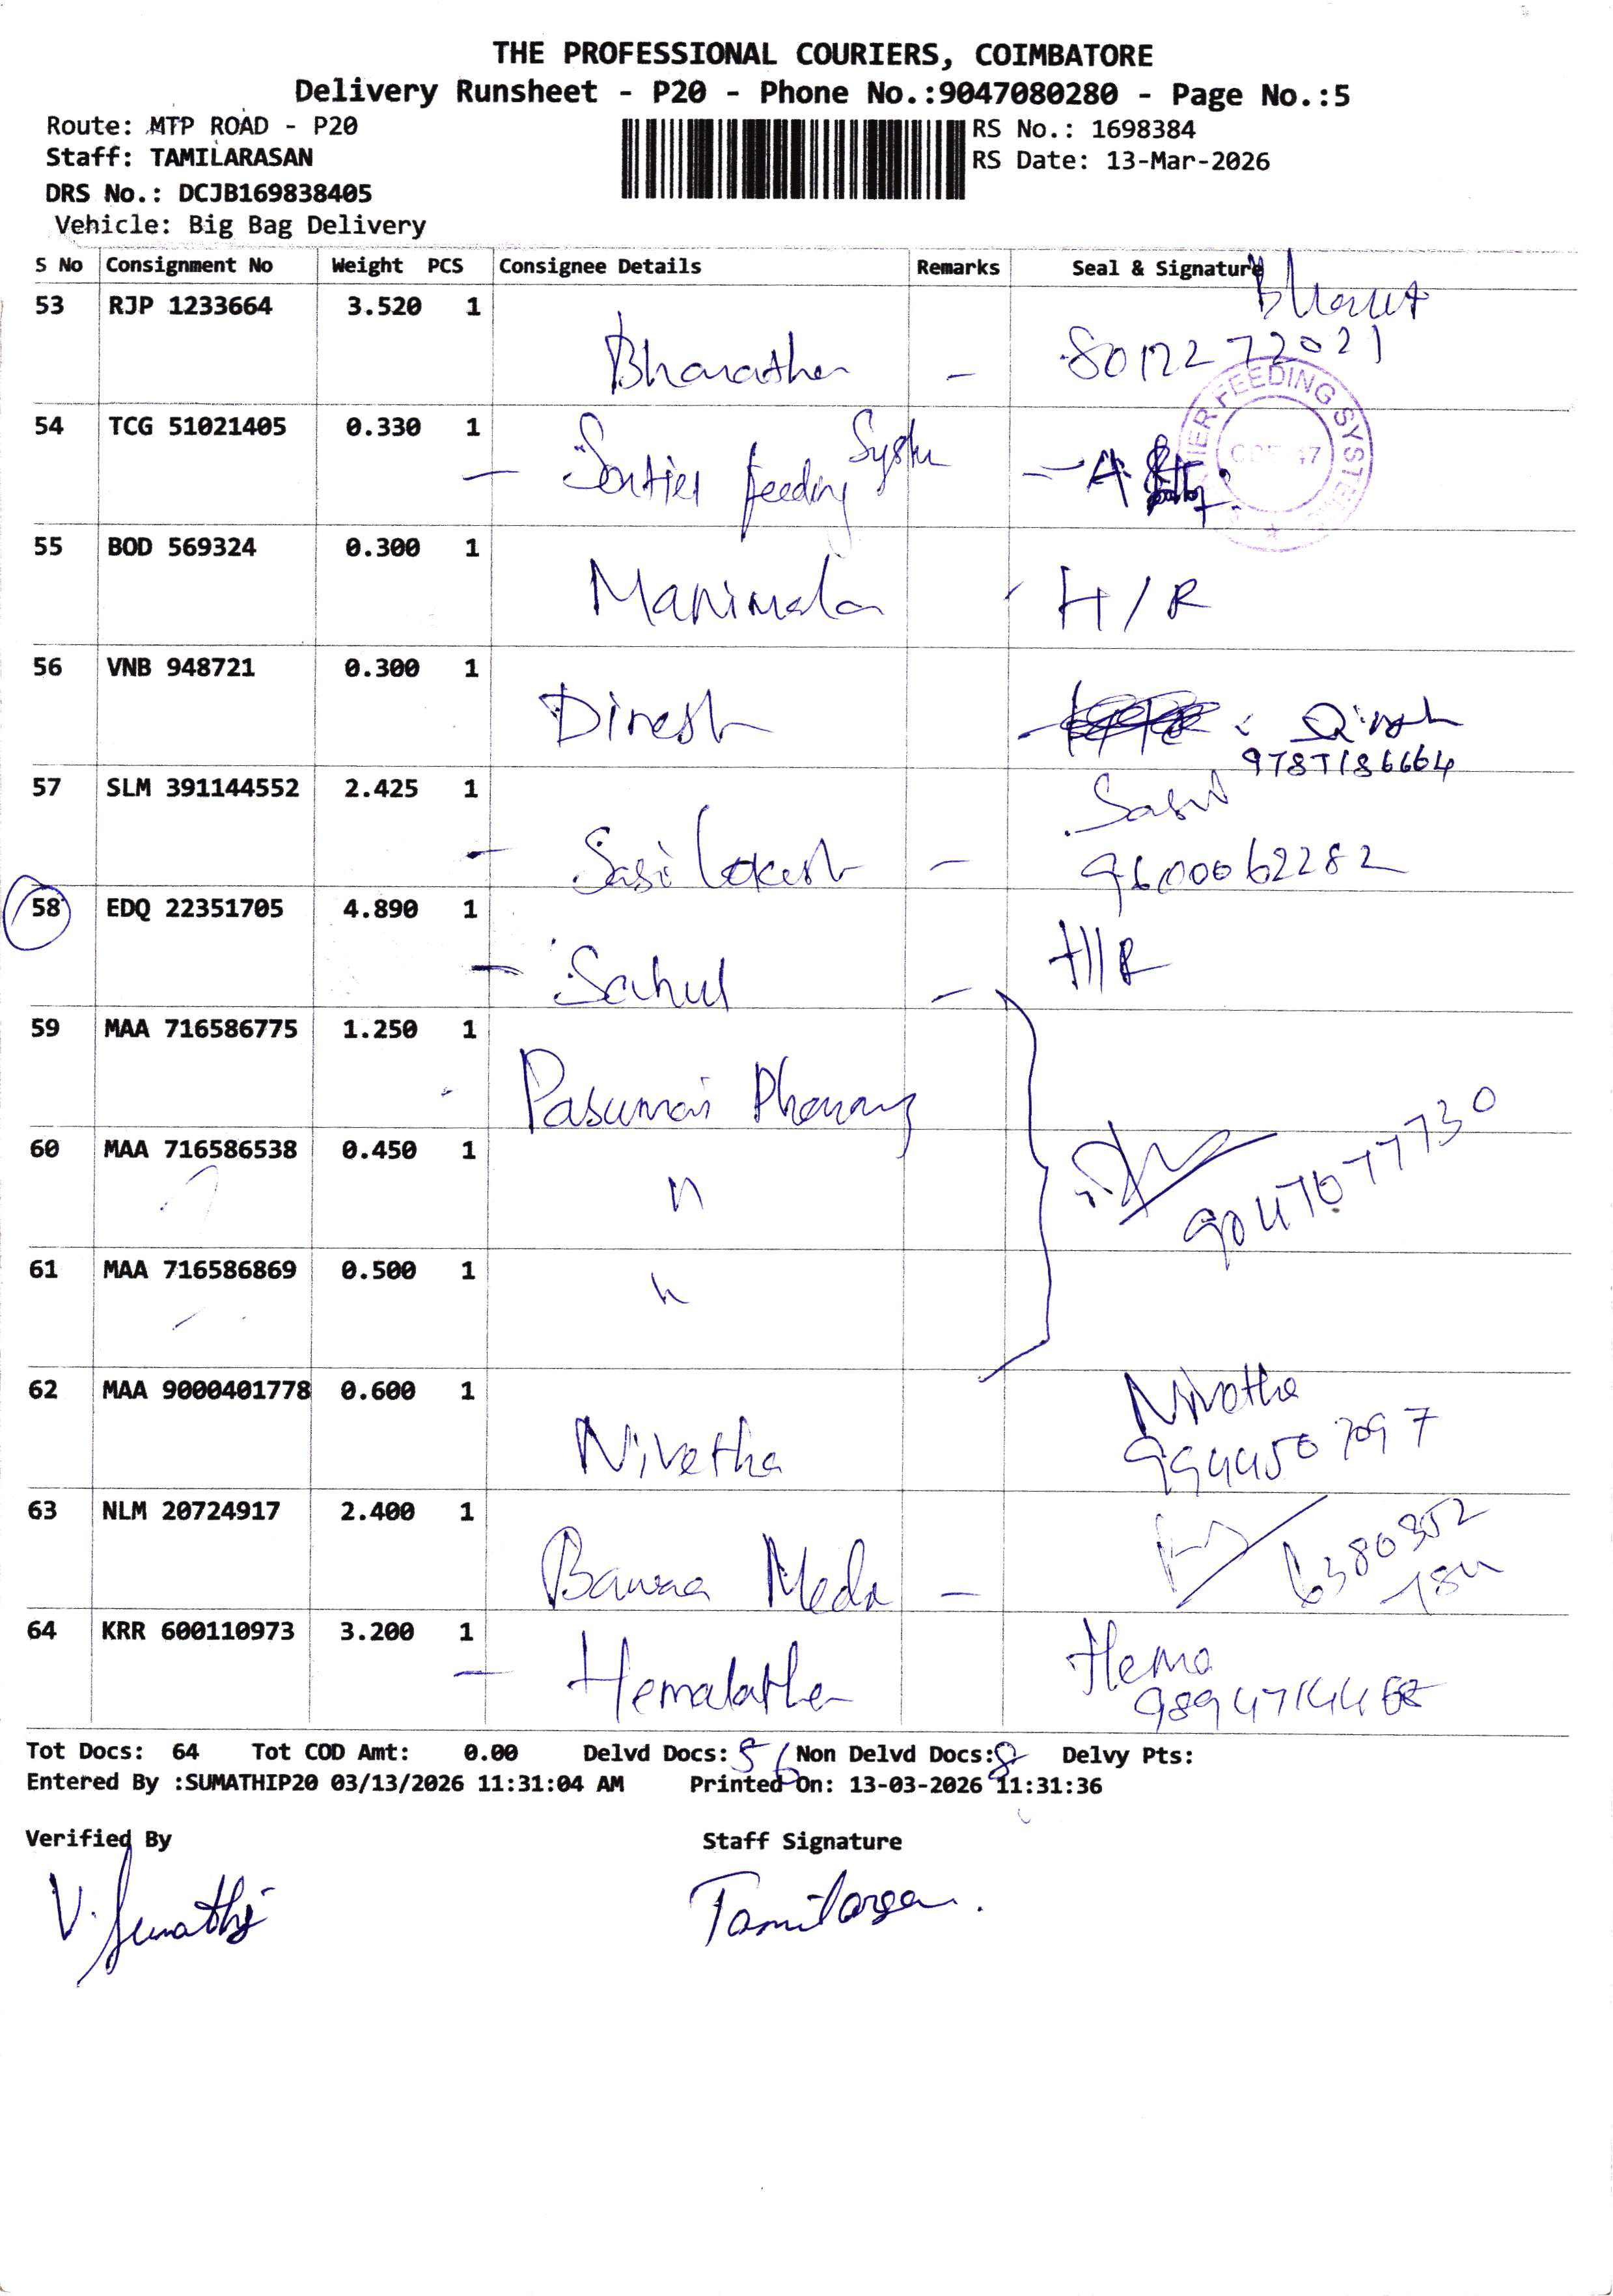 THE PROFESSIONAL COURIERS, COIMBATORE
Delivery Runsheet - P20 - Phone No.:9047080280 - Page No.:5
Route: MTP ROAD - P20
RS No.: 1698384
Staff: TAMILARASAN
RS Date: 13-Mar-2026
DRS No.: DCJB169838405
Vehicle: Big Bag Delivery
S No Consignment No Weight PCS Consignee Details Remarks Seal & Signature
53 RJP 1233664 3.520 1
8012272021
54 TCG 51021405 0.330 1
feeding System
FEEDING SYSTE
55 BOD 569324 0.300 1
Manimala H/R
56 VNB 948721 0.300 1
Dinesh Dinesh
9787186664
57 SLM 391144552 2.425 1
Sasi Lokesh
9600062282
58 EDQ 22351705 4.890 1
Sahul H/R
59 MAA 716586775 1.250 1
Pasumai Pharmacy
60 MAA 716586538 0.450 1
"
9047077730
61 MAA 716586869 0.500 1
"
62 MAA 9000401778 0.600 1
Nivetha Nivetha
9944507097
63 NLM 20724917 2.400 1
64 KRR 600110973 3.200 1
Hemalatha Hema
Tot Docs: 64 Tot COD Amt: 0.00 Delvd Docs: 56 Non Delvd Docs: 8 Delvy Pts:
Entered By :SUMATHIP20 03/13/2026 11:31:04 AM Printed On: 13-03-2026 11:31:36
Verified By Staff Signature
V. Sumathi Tamilarasan.